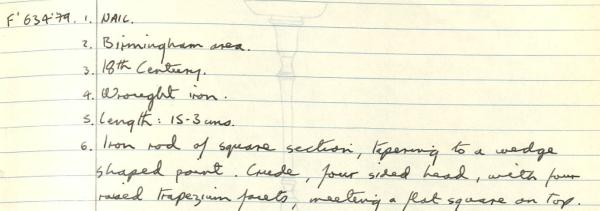 F'634'79. 1. NAIL.
2. Birmingham area.
3. 18th Century.
4. Wrought iron.
5. Length: 15.3 cms.
6. Iron rod of square section, tapering to a wedge
shaped point. Crude, four sided head, with four
raised trapezium facets, meeting a flat square on top.